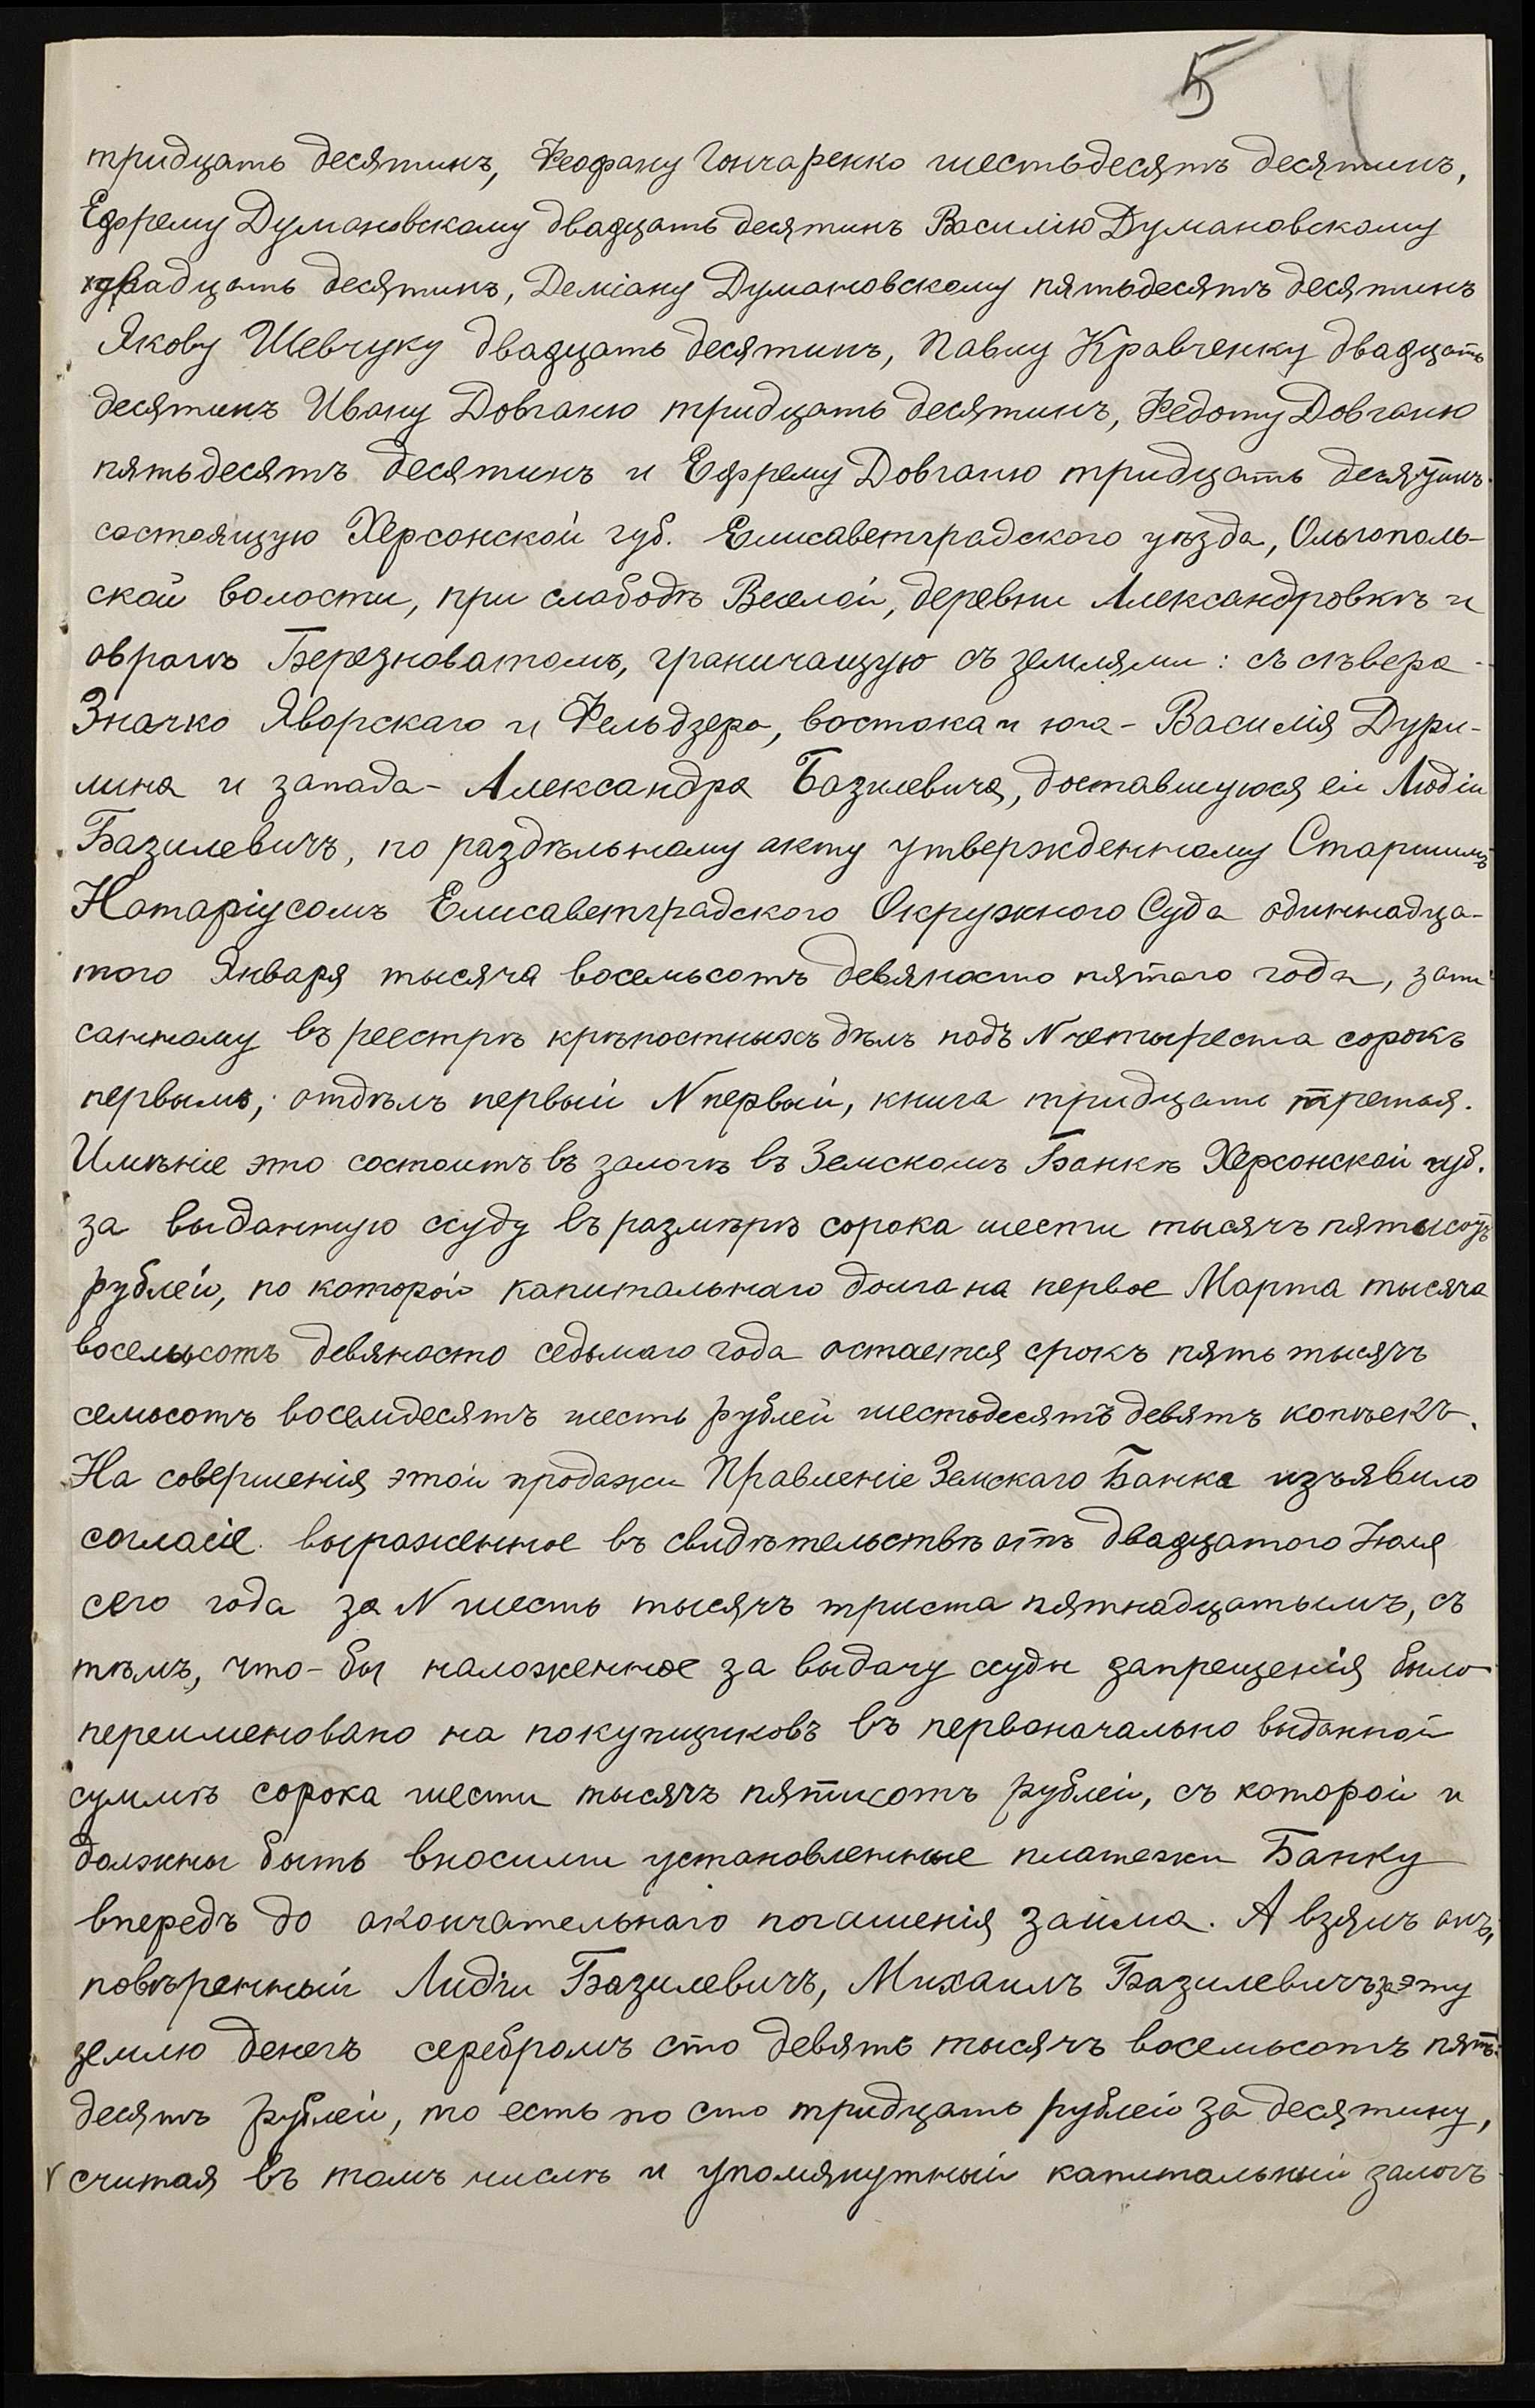 5 4
тридцать десятинъ, Феофану Гончаренко шестьдесятъ десятинъ,
Ефрему Думановскому двадцать десятинъ Василію Думановскому
двадцать десятинъ, Деміану Думановскому пятьдесятъ десятинъ
Якову Шевчуку двадцать десятинъ, Павлу Кравченку двадцать
десятинъ Ивану Довганю тридцать десятинъ, Федоту Довганю
пятьдесятъ десятинъ и Ефрему Довганю тридцать десятинъ
состоящую Херсонской губ. Елисаветградского уѣзда, Ольгополь-
ской волости, при слободѣ Веселой, деревни Александровкѣ и
овраге Березноватомъ, граничащую съ землями: съ сѣвера -
Значко Яворскаго и Фельдзера, востока и юга - Василія Дури-
лина и запада - Александра Базилевича, доставшуюся ей Лидіи
Базилевичъ, по раздѣльному акту утвержденному Старшимъ
Нотаріусомъ Елисаветградского Окружного Суда одиннадца-
того Января тысяча восемьсотъ девяносто пятаго года, запи
санному въ реестрѣ крѣпостныхъ дѣлъ подъ N четыреста сорокъ
первымъ, отдѣлъ первый N первый, книга тридцать третья.
Имѣніе это состоитъ въ залогѣ въ Земскомъ Банкѣ Херсонской губ.
за выданную ссуду въ размѣрѣ сорока шести тысячъ пятисотъ
рублей, по которой капитальнаго долга на первое Марта тысяча
восемьсотъ девяносто седьмаго года остается срокъ пять тысячъ
семьсотъ восемдесятъ шесть рублей шестьдесятъ девять копѣекъ.
На совершенія этой продажи Правленіе Земскаго Банка изъявило
согласіе выраженное въ свидѣтельствѣ отъ двадцатого Іюля
сего года за N шесть тысячъ триста пятнадцатымъ, съ
тѣмъ, что-бы наложенное за выдачу ссуды запрещенія было
переименовано на покупщиковъ въ первоначально выданной
суммѣ сорока шести тысячъ пятисотъ рублей, съ которой и
должны быть вносими установленные платежи Банку
впередъ до окончательнаго погашенія займа. А взялъ онъ,
повѣренный Лидіи Базилевичъ, Михаилъ Базилевичъ за эту
землю денегъ серебромъ сто девять тысячъ восемьсотъ пять-
десятъ рублей, то есть по сто тридцать рублей за десятину,
считая въ томъ числѣ и упомянутный капитальный залогъ